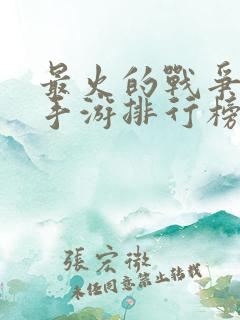 最火的戰爭
手游排行榜
張宏微
未经同意禁止转载